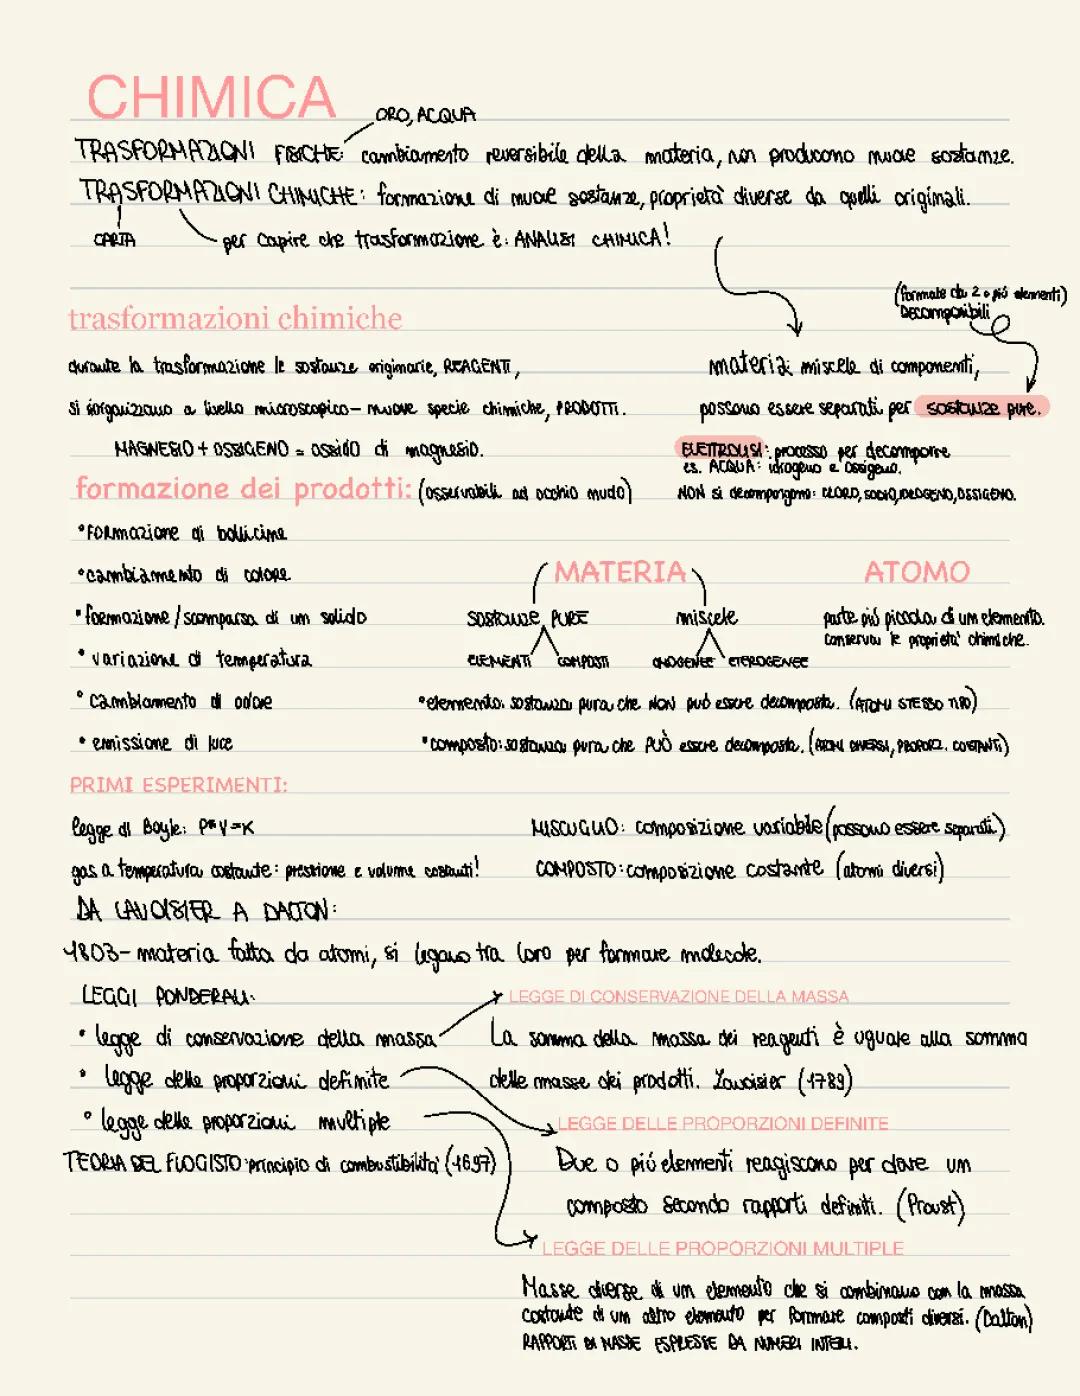 CHIMICA
ORO, ACQUA
TRASFORMAZIONI FISICHE: cambiamento reversibile della materia, non producono nuove sostanze.
TRASFORMAZIONI CHIMICHE: formazione di nuove sostanze, proprietà diverse da quelli originali.
CARTA
per capire che trasformazione è: ANALISI CHIMICA!
(formate da 2 o più elementi)
Decomponibili
trasformazioni chimiche
durante la trasformazione le sostanze originarie, REAGENTI,
si riorganizzano a livello microscopico - nuove specie chimiche, PRODOTTI.
MAGNESIO + OSSIGENO = ossido di magnesio.
materia: miscele di componenti,
possono essere separati per sostanze pure.
ELETTROLISI: processo per decomporre
es. ACQUA: idrogeno e ossigeno.
NON si decompongono: CLORO, SODIO, IDROGENO, OSSIGENO.
formazione dei prodotti: (osservabili ad occhio nudo)
•Formazione di bollicine
•cambiamento di colore
•formazione/scomparsa di un solido
•variazione di temperatura
•cambiamento di odore
•emissione di luce
MATERIA
sostanze PURE miscele
ELEMENTI COMPOSTI OMOGENEE ETEROGENEE
ATOMO
parte più piccola di un elemento.
conserva le proprietà chimiche.
•elemento: sostanza pura che NON può essere decomposta. (ATOMI STESSO TIPO)
•composto: sostanza pura che PUÒ essere decomposta. (ATOMI DIVERSI, PROPORZ. COSTANTI)
PRIMI ESPERIMENTI:
legge di Boyle: P*V=K
gas a temperatura costante: pressione e volume costanti!
MISCUGLIO: composizione variabile (possono essere separati)
COMPOSTO: composizione costante (atomi diversi)
DA LAVOISIER A DALTON:
1803- materia fatta da atomi, si legano tra loro per formare molecole.
LEGGI PONDERALI:
• legge di conservazione della massa
• legge delle proporzioni definite
• legge delle proporzioni multiple
TEORIA DEL FLOGISTO: principio di combustibilità (1697)
LEGGE DI CONSERVAZIONE DELLA MASSA
La somma della massa dei reagenti è uguale alla somma
delle masse dei prodotti. Lavoisier (1789)
LEGGE DELLE PROPORZIONI DEFINITE
Due o più elementi reagiscono per dare un
composto secondo rapporti definiti. (Proust)
LEGGE DELLE PROPORZIONI MULTIPLE
Masse diverse di un elemento che si combinano con la massa
costante di un altro elemento per formare composti diversi. (Dalton)
RAPPORTI DI MASSE ESPRESSE DA NUMERI INTERI.